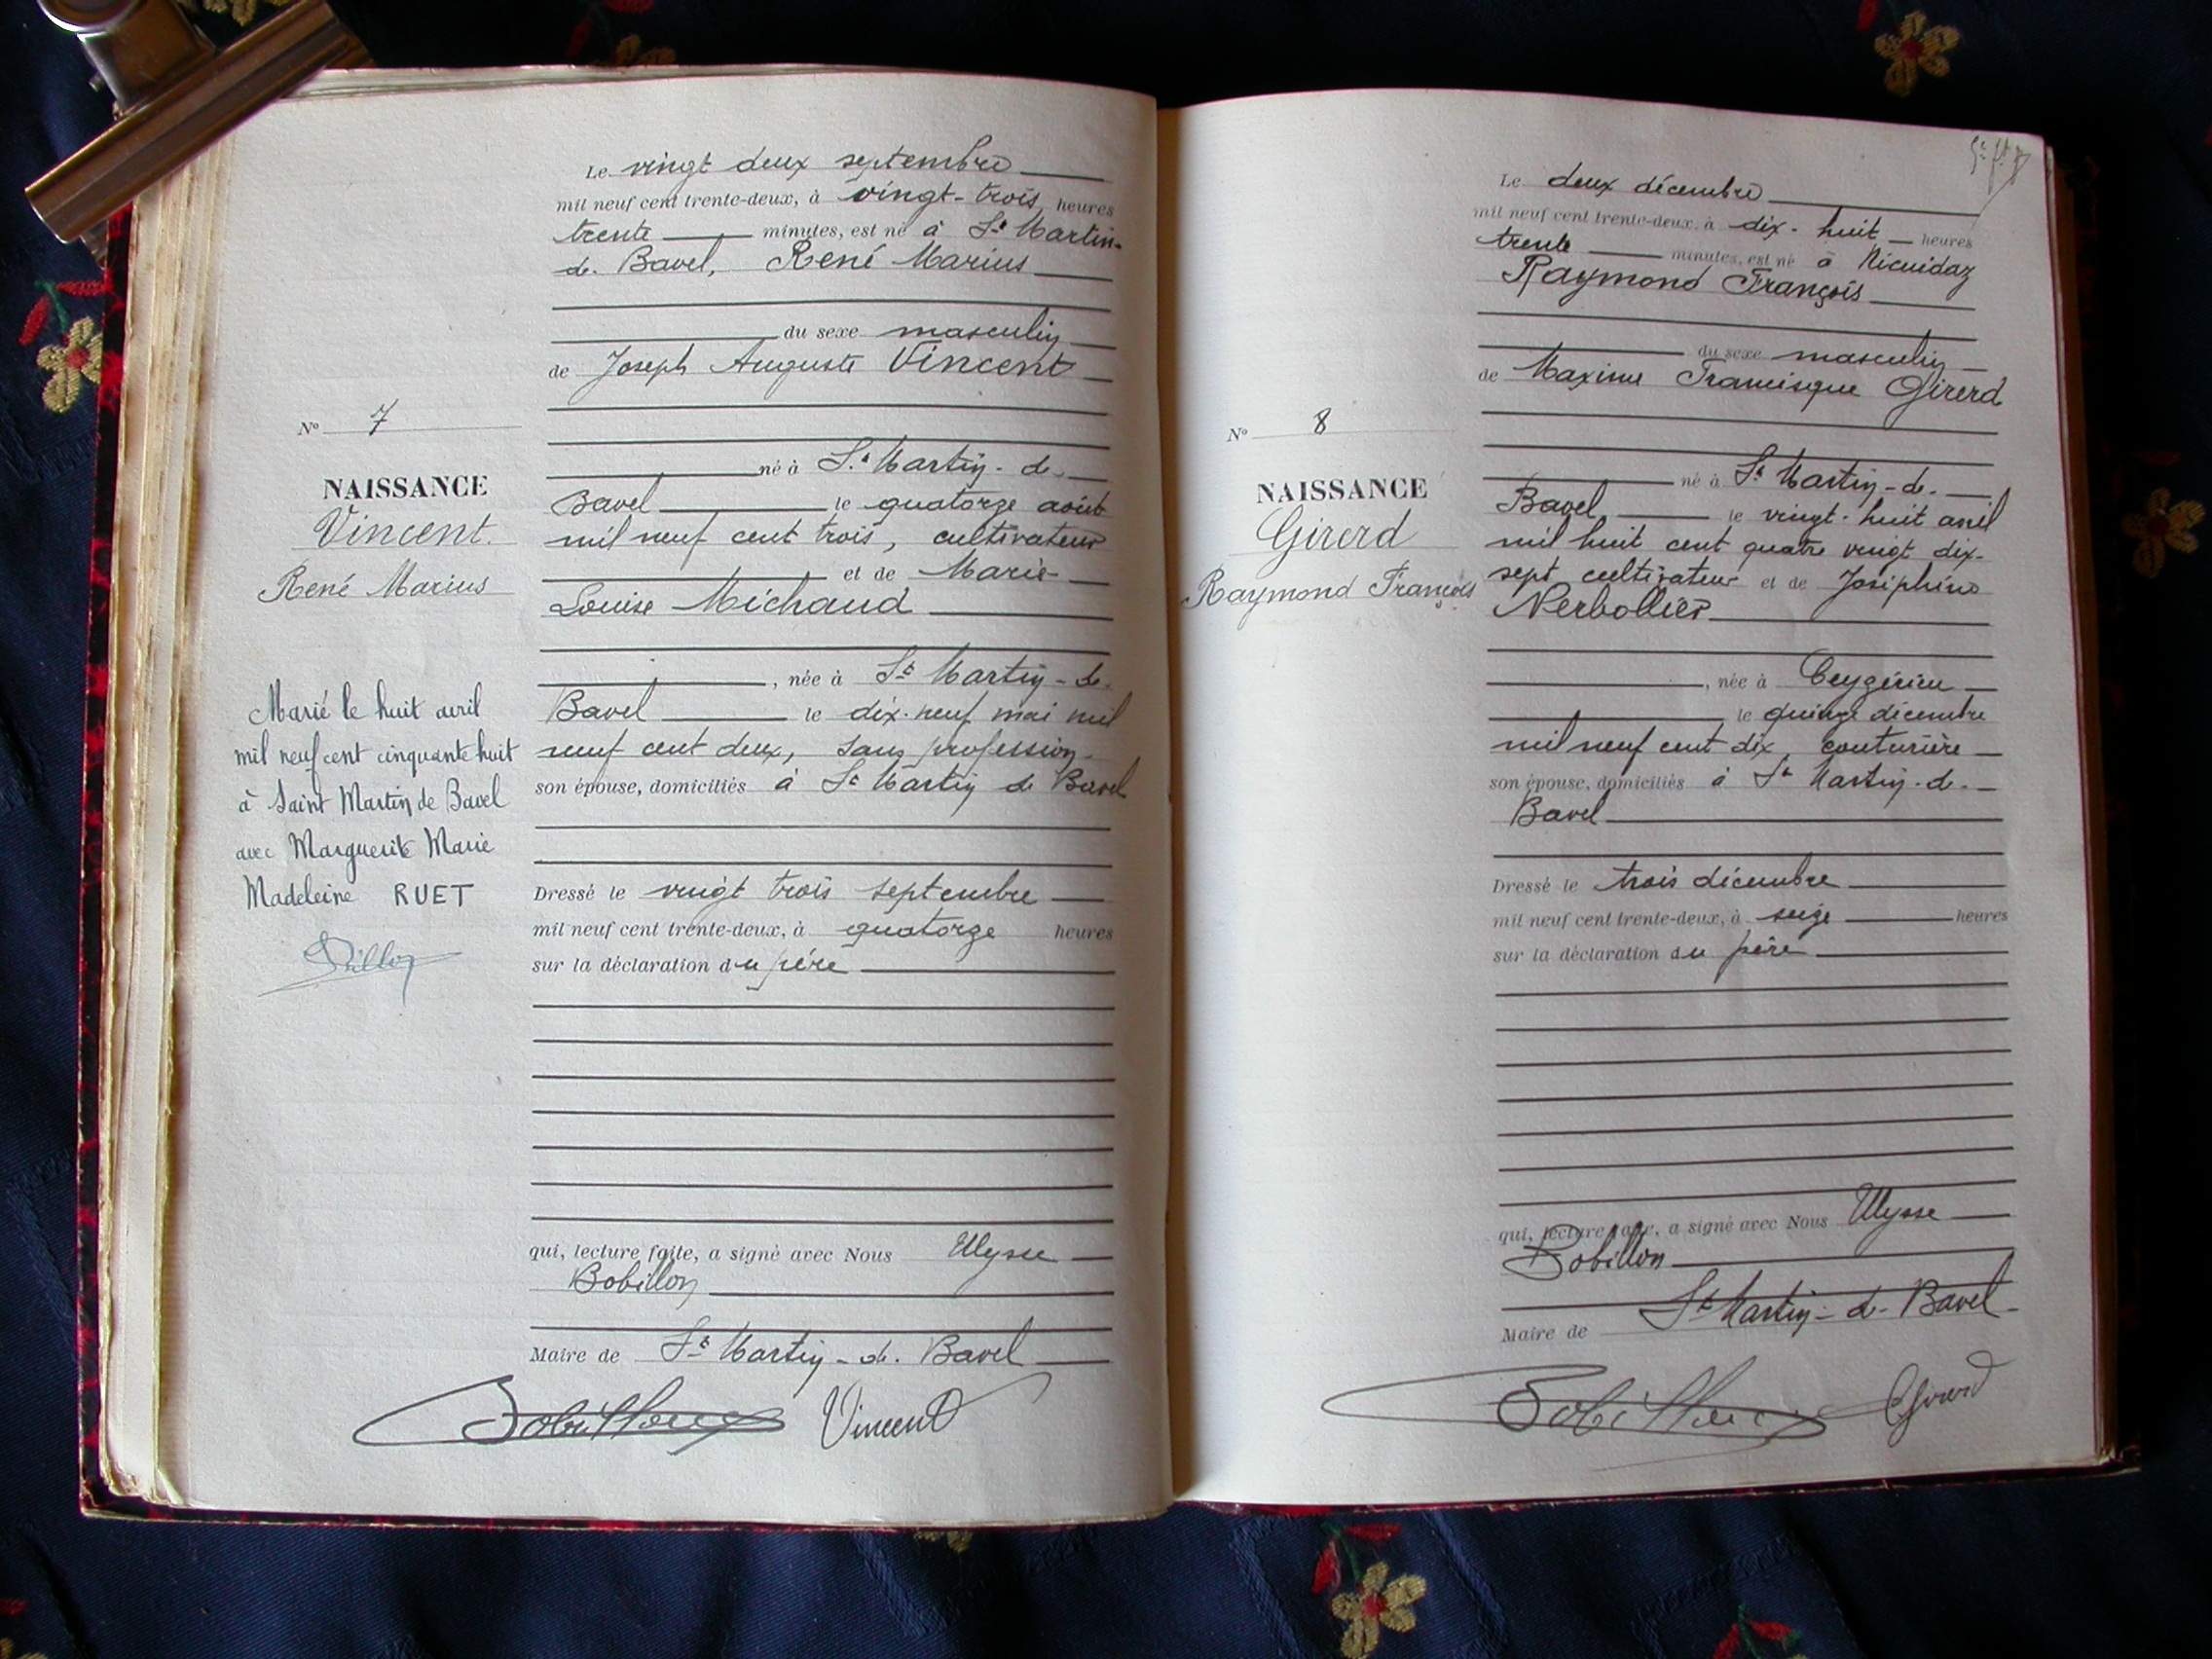 Le vingt deux septembre
mil neuf cent trente-deux, à vingt-trois heures
trente minutes, est né à St Martin-
de Bavel, René Marius
du sexe masculin
de Joseph Auguste Vincent
né à St Martin-de-
Bavel le quatorze août
mil neuf cent trois, cultivateur
et de Marie-
Louise Michaud
, née à St Martin-de-
Bavel le dix-neuf mai mil
neuf cent deux, sans profession
son épouse, domiciliés à St Martin de Bavel
Dressé le vingt trois septembre
mil neuf cent trente-deux, à quatorze heures
sur la déclaration du père
qui, lecture faite, a signé avec Nous Ulysse
Bobillon
Maire de St Martin-de-Bavel
Bobillon Vincent
No 7
NAISSANCE
Vincent.
René Marius
Marié le huit avril
mil neuf cent cinquante huit
à Saint Martin de Bavel
avec Marguerite Marie
Madeleine RUET
Le deux décembre
mil neuf cent trente-deux, à dix-huit heures
trente minutes, est né à
Raymond François
du sexe masculin
de Maxime Francisque Girerd
né à St Martin-de-
Bavel le vingt-huit avril
mil huit cent quatre vingt dix-
sept cultivateur et de Joséphine
Nerbollier
, née à Ceyzérieu
le quinze décembre
mil neuf cent dix, couturière
son épouse, domiciliés à St Martin-de-
Bavel
Dressé le trois décembre
mil neuf cent trente-deux, à seize heures
sur la déclaration du père
qui, lecture faite, a signé avec Nous Ulysse
Bobillon
Maire de St Martin-de-Bavel
Bobillon Girerd
No 8
NAISSANCE
Girerd
Raymond François